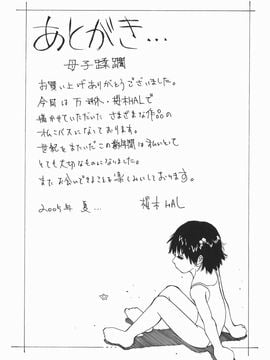 あとがき…
母子蹂躙
お買い上げありがとうございました。
今回は万　　・　木HALで
描かせていただいた さまざまな作品の
になっております。
世紀をまたいだこの　年間は私にとって
とても大切なものになりました。
またお会いできることを楽しみにしております。
2005年 夏…
木HAL